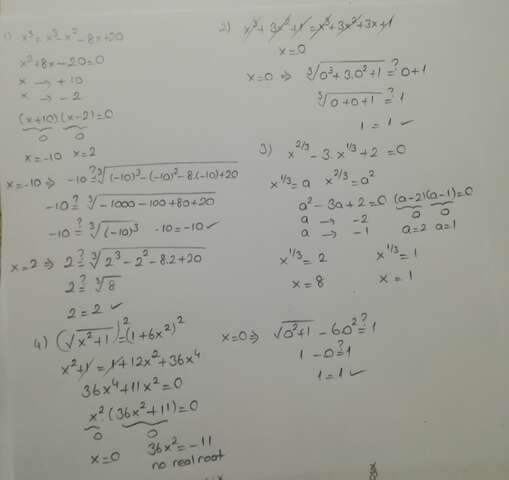 1) x³ = x³ - x² - 8x + 20
x² + 8x - 20 = 0
x → +10
x → -2
(x+10)(x-2) = 0
0 0
x = -10 x = 2
x = -10 ⇒ -10 ≟ ∛((-10)³ - (-10)² - 8.(-10) + 20)
-10 ≟ ∛(-1000 - 100 + 80 + 20)
-10 ≟ ∛((-10)³) -10 = -10 ✓
x = 2 ⇒ 2 ≟ ∛(2³ - 2² - 8.2 + 20)
2 ≟ ∛8
2 = 2 ✓
2) x³ + 3x² + 1 = x³ + 3x² + 3x + 1
x = 0
x = 0 ⇒ ∛(0³ + 3.0² + 1) ≟ 0 + 1
∛(0 + 0 + 1) ≟ 1
1 = 1 ✓
3) x^(2/3) - 3.x^(1/3) + 2 = 0
x^(1/3) = a x^(2/3) = a²
a² - 3a + 2 = 0 (a-2)(a-1) = 0
a → -2 0 0
a → -1 a = 2 a = 1
x^(1/3) = 2 x^(1/3) = 1
x = 8 x = 1
4) (√(x² + 1))² = (1 + 6x²)²
x² + 1 = 1 + 12x² + 36x⁴
36x⁴ + 11x² = 0
x² (36x² + 11) = 0
0 0
x = 0 36x² = -11
no real root
x = 0 ⇒ √(0² + 1) - 6.0² ≟ 1
1 - 0 ≟ 1
1 = 1 ✓